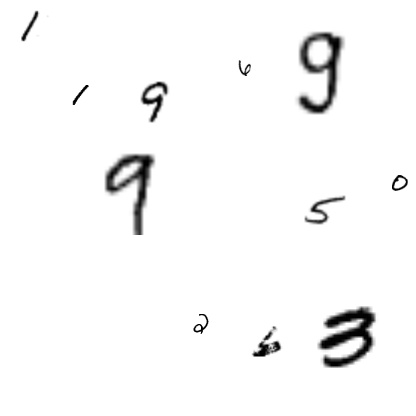 1
1 9 6 9
9 5 0
2 6 3